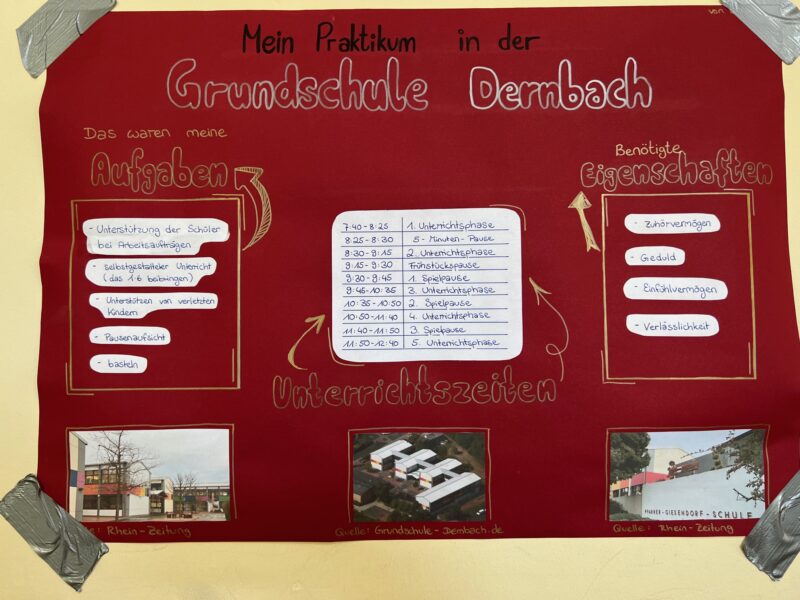 von
Mein Praktikum in der
Grundschule Dernbach
Das waren meine
Aufgaben
- Unterstützung der Schüler
bei Arbeitsaufträgen
- selbstgestalteter Unterricht
(das 1·6 beibringen)
- Unterstützen von verletzten
Kindern
- Pausenaufsicht
- basteln
7:40-8:25 1. Unterrichtsphase
8:25-8:30 5-Minuten-Pause
8:30-9:15 2. Unterrichtsphase
9:15-9:30 Frühstückspause
9:30-9:45 1. Spielpause
9:45-10:35 3. Unterrichtsphase
10:35-10:50 2. Spielpause
10:50-11:40 4. Unterrichtsphase
11:40-11:50 3. Spielpause
11:50-12:40 5. Unterrichtsphase
Unterrichtszeiten
Benötigte
Eigenschaften
- Zuhörvermögen
- Geduld
- Einfühlvermögen
- Verlässlichkeit
PFARRER-GIESENDORF-SCHULE
Rhein-Zeitung
Quelle: Grundschule-Dernbach.de
Quelle: Rhein-Zeitung